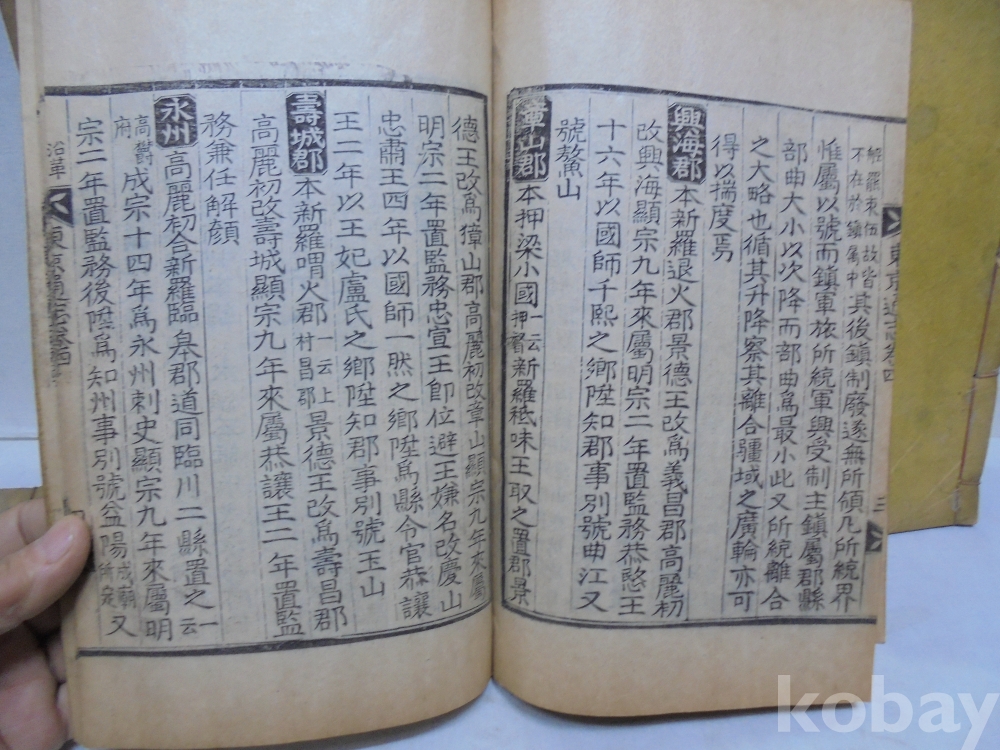 東京通志卷四
三
解羅束伍故皆
不在於鎭屬中
其後鎭制廢遂無所領凡所統界
惟屬以號而鎭軍旅所統軍興受制主鎭屬郡縣
部曲大小以次降而部曲爲最小此又所統離合
之大略也循其升降察其離合疆域之廣輪亦可
得以揣度焉
興海郡本新羅退火郡景德王改爲義昌郡高麗初
改興海顯宗九年來屬明宗二年置監務恭愍王
十六年以國師千熙之鄉陞知郡事別號曲江又
號鰲山
章山郡本押梁小國一云押督新羅祗味王取之置郡景
德王改爲獐山郡高麗初改章山顯宗九年來屬
明宗二年置監務忠宣王卽位避王嫌名改慶山
忠肅王四年以國師一然之鄉陞爲縣令官恭讓
王二年以王妃盧氏之鄉陞知郡事別號玉山
壽城郡本新羅喟火郡一云上村昌郡景德王改爲壽昌郡
高麗初改壽城顯宗九年來屬恭讓王二年置監
務兼任解顏
永州高麗初合新羅臨皋郡道同臨川二縣置之一云
高鬱府成宗十四年爲永州刺史顯宗九年來屬明
宗二年置監務後陞爲知州事別號益陽成廟所定又
沿革
東京通志卷四
kobay